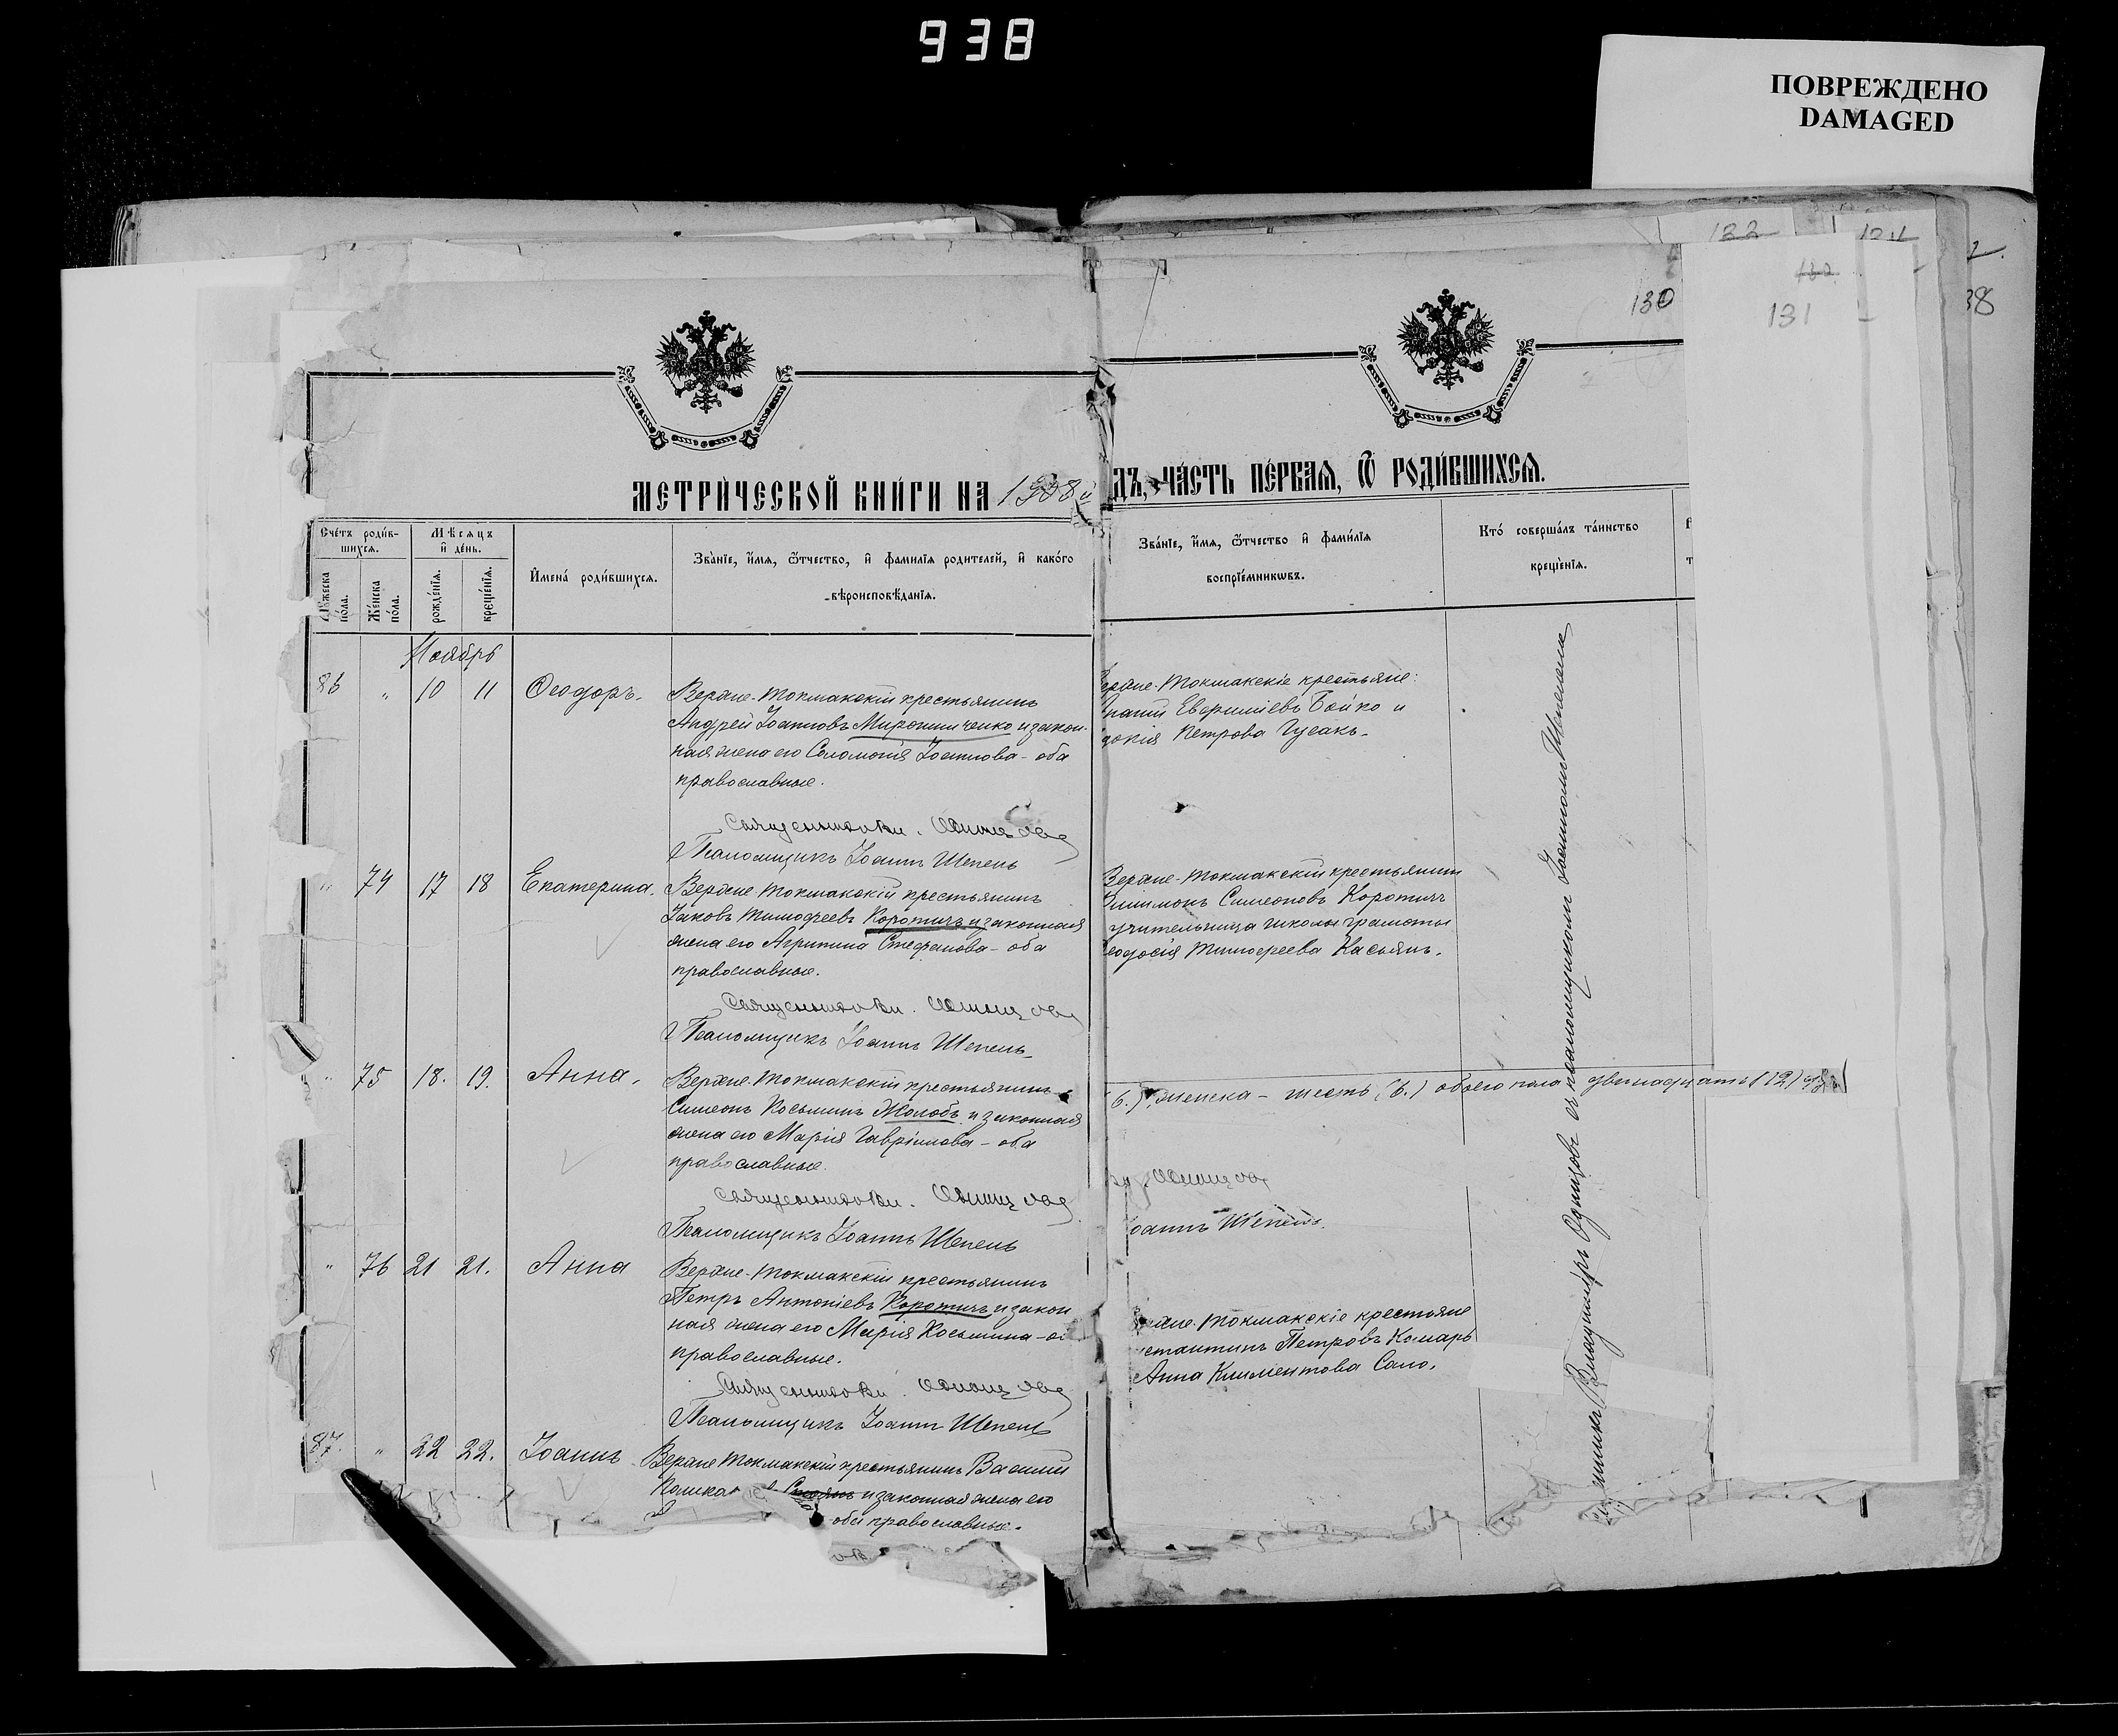 938
ПОВРЕЖДЕНО
DAMAGED
133
130
131
38
МЕТРИЧЕСКОЙ КНИГИ НА 1908й
ДЪ, ЧАСТЬ ПЕРВАЯ, Ѿ РОДИВШИХСЯ.
Счетъ родив-
шихся.
Мѣсяцъ
и день.
Мужеска
пола.
Женска
пола.
рожденія.
крещенія.
Имена родившихся.
Званіе, имя, ѿтчество, и фамилія родителей, и какого
вѣроисповѣданія.
Званіе, имя, ѿтчество и фамилія
воспріемникѡвъ.
Кто совершалъ таинство
крещенія.
Ноябрь
86 " 10 11 Ѳеодоръ.
Верхне-Токмакскій крестьянинъ
Андрей Іоанновъ Мирошниченко и закон-
ная жена его Соломонія Іоаннова - оба
православные.
Священникъ Вл. Одинцовъ
Псаломщикъ Іоаннъ Шепель
ерхне-Токмакскіе крестьяне:
Евфиміевъ Бойко и
докія Петрова Гусакъ.
" 74 17 18 Екатерина.
Верхне-Токмакскій крестьянинъ
Іаковъ Тимофеевъ Коротичъ и законная
жена его Агрипина Стефанова - оба
православные.
Священникъ Вл. Одинцовъ
Псаломщикъ Іоаннъ Шепель
Верхне-Токмакскій крестьянинъ
Симеоновъ Коротичъ
учительница школы грамоты
еодосія Тимофеева Касьянъ.
" 75 18. 19. Анна.
Верхне-Токмакскій крестьянинъ
Симеонъ Косьминъ Жолобъ и законная
жена его Марія Гавріилова - оба
православные.
Священникъ Вл. Одинцовъ
Псаломщикъ Іоаннъ Шепель
6.), женска - шесть (6.) обоего пола двенадцать (12)
Вл. Одинцовъ
оаннъ Шепель.
" 76 21 21. Анна
Верхне-Токмакскій крестьянинъ
Петръ Антоніевъ Коротичъ и закон
ная жена его Марія Косьмина - о
православные.
Священникъ Вл. Одинцовъ
Псаломщикъ Іоаннъ Шепель
хне-Токмакскіе крестьяне
стантинъ Петровъ Комаръ
Анна Климентова Сало.
87. " 22 22. Іоаннъ
Верхне Токмакскій крестьянинъ Василій
и законная жена его
оба православные.
ов
Владиміръ Одинцовъ съ псаломщикомъ Іоанномъ Шепелемъ